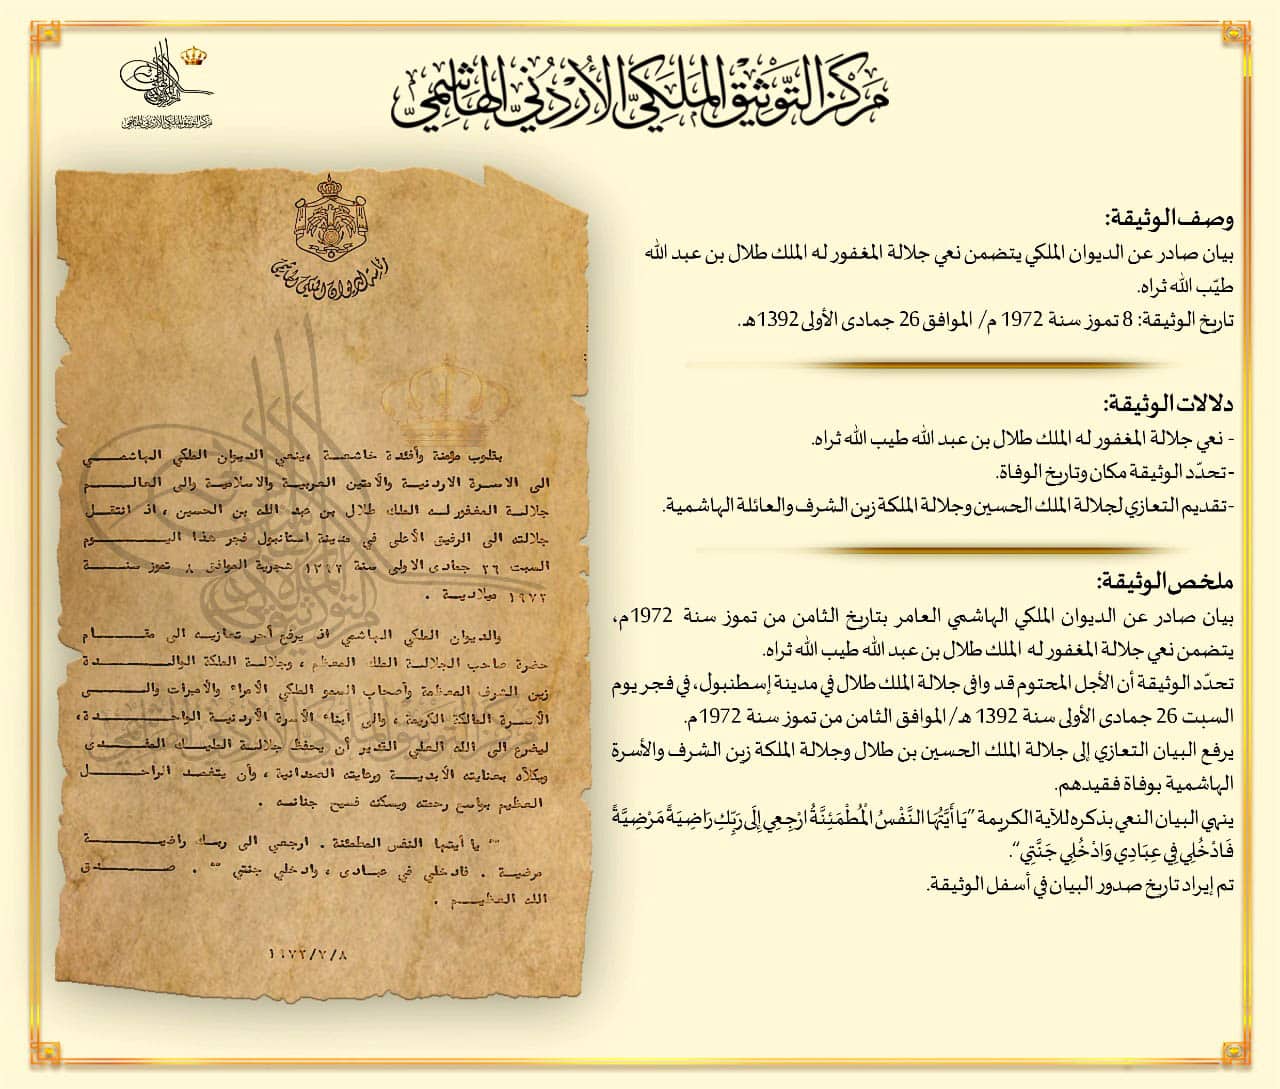 مركز التوثيق الملكي الأردني الهاشمي
مركز التوثيق الملكي الأردني الهاشمي
وصف الوثيقة:
بيان صادر عن الديوان الملكي يتضمن نعي جلالة المغفور له الملك طلال بن عبد الله
طيّب الله ثراه.
تاريخ الوثيقة: 8 تموز سنة 1972 م/ الموافق 26 جمادى الأولى 1392هـ.
دلالات الوثيقة:
- نعي جلالة المغفور له الملك طلال بن عبد الله طيب الله ثراه.
-تحدّد الوثيقة مكان وتاريخ الوفاة.
-تقديم التعازي لجلالة الملك الحسين وجلالة الملكة زين الشرف والعائلة الهاشمية.
ملخص الوثيقة:
بيان صادر عن الديوان الملكي الهاشمي العامر بتاريخ الثامن من تموز سنة 1972م،
يتضمن نعي جلالة المغفور له الملك طلال بن عبد الله طيب الله ثراه.
تحدّد الوثيقة أن الأجل المحتوم قد وافى جلالة الملك طلال في مدينة إسطنبول، في فجر يوم
السبت 26 جمادى الأولى سنة 1392 هـ/ الموافق الثامن من تموز سنة 1972م.
يرفع البيان التعازي إلى جلالة الملك الحسين بن طلال وجلالة الملكة زين الشرف والأسرة
الهاشمية بوفاة فقيدهم.
ينهي البيان النعي بذكره للآية الكريمة "يَا أَيَّتُهَا النَّفْسُ الْمُطْمَئِنَّةُ ارْجِعِي إِلَى رَبِّكِ رَاضِيَةً مَرْضِيَّةً
فَادْخُلِي فِي عِبَادِي وَادْخُلِي جَنَّتِي".
تم إيراد تاريخ صدور البيان في أسفل الوثيقة.
رئاسة الديوان الملكي الهاشمي
بقلوب مؤمنة وأفئدة خاشعة ، ينعي الديوان الملكي الهاشمي
الى الاسرة الاردنية والأمتين العربية والاسلامية والى العالم
جلالة المغفور له الملك طلال بن عبد الله بن الحسين ، اذ انتقل
جلالته الى الرفيق الأعلى في مدينة استانبول فجر هذا اليوم
السبت ٢٦ جمادى الاولى سنة ١٣٩٢ هجرية الموافق ٨ تموز سنة
١٩٧٢ ميلادية .
والديوان الملكي الهاشمي اذ يرفع أحر تعازيه الى مقام
حضرة صاحب الجلالة الملك المعظم ، وجلالة الملكة الوالدة
زين الشرف المعظمة وأصحاب السمو الملكي الأمراء والأميرات والى
الأسرة المالكة الكريمة ، والى أبناء الأسرة الأردنية الواحدة ،
ليضرع الى الله العلي القدير أن يحفظ جلالة المليك المفدى
ويكلأه بعنايته الأبدية ورعايته الصمدانية ، وأن يتغمد الراحل
العظيم بواسع رحمته ويسكنه فسيح جنانه .
"" يا أيتها النفس المطمئنة . ارجعي الى ربك راضية
مرضية . فادخلي في عبادى ، وادخلي جنتي "" . صدق
الله العظيم .
١٩٧٢/٧/٨